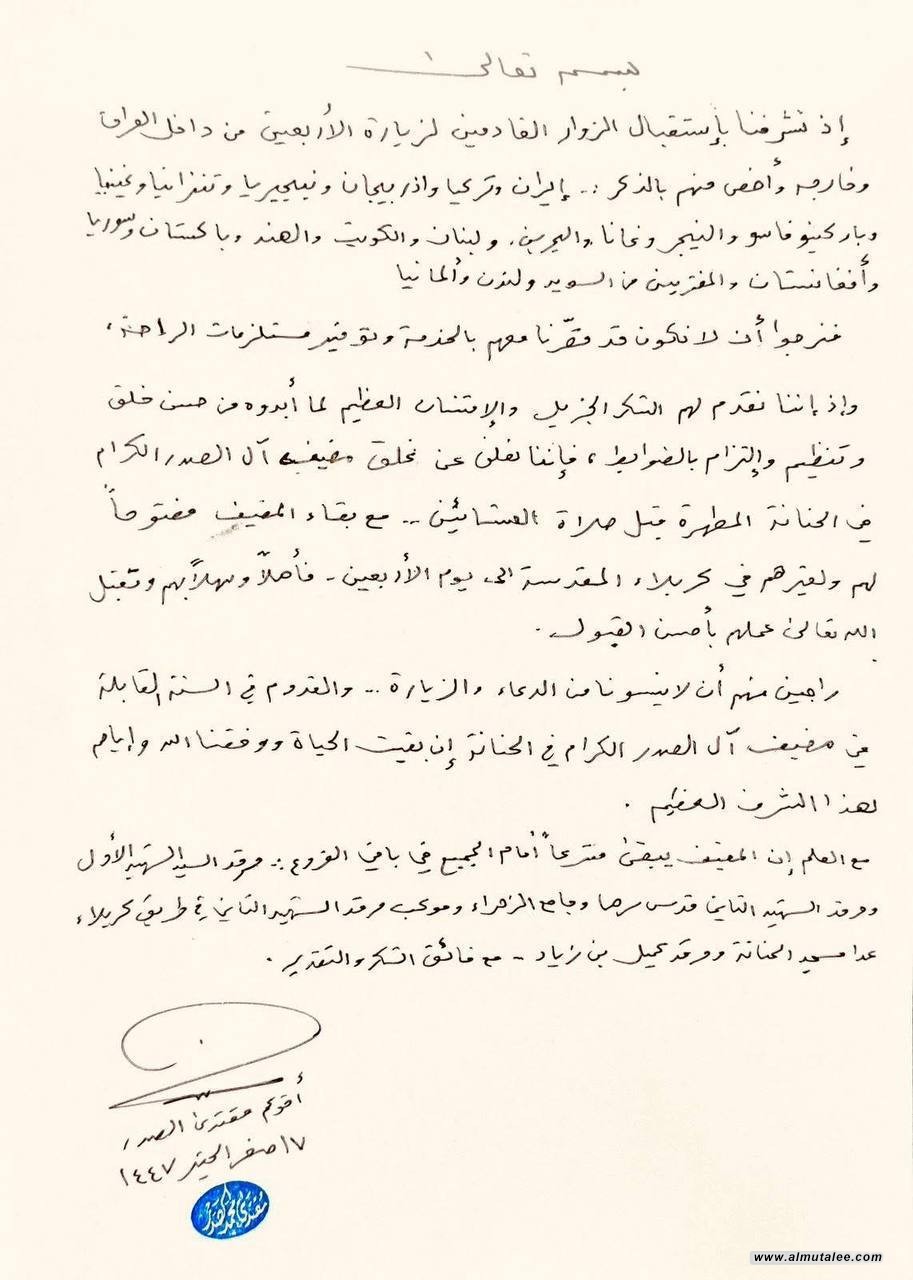 بسمه تعالى
إذ تشرفنا بإستقبال الزوار القادمين لزيارة الأربعين من داخل العراق
وخارجه وأخص منهم بالذكر :. إيران وتركيا واذربيجان ونيجيريا وتنزانيا وغينيا
وباركينوفاسو والنيجر وغانا والبحرين ولبنان والكويت والهند وباكستان وسوريا
وأفغانستان والمغتربين من السويد ولندن وألمانيا
فنرجوا أن لا نكون قد قصّرنا معهم بالخدمة وتوفير مستلزمات الراحة ،
وإذ إننا نقدم لهم الشكر الجزيل والإمتنان العظيم لما أبدوه من حسن خلق
وتنظيم وإلتزام بالضوابط ، فإننا نعلن عن غلق مضيف آل الصدر الكرام
في الحنانة المطهرة قبل صلاة العشائين .. مع بقاء المضيف مفتوحاً
لهم ولغيرهم في كربلاء المقدسة الى يوم الأربعين - فأهلاً وسهلاً بهم وتقبل
الله تعالى عملهم بأحسن القبول .
راجين منهم أن لا ينسونا من الدعاء والزيارة .. والقدوم في السنة القابلة
في مضيف آل الصدر الكرام في الحنانة إن بقيت الحياة ووفقنا الله وإياهم
لهذا الشرف العظيم .
مع العلم إن المضيف يبقى مشرعاً أمام الجميع في باقي الفروع :. مرقد السيد الشهيد الأول
ومرقد الشهيد الثاني قدس سرهما وجامع الزهراء وموكب مرقد الشهيد الثاني في طريق كربلاء
عدا مسجد الحنانة ومرقد كميل بن زياد - مع فائق الشكر والتقدير .
أخوكم مقتدى الصدر
١٧ صفر الخير ١٤٤٧
www.almutalee.com